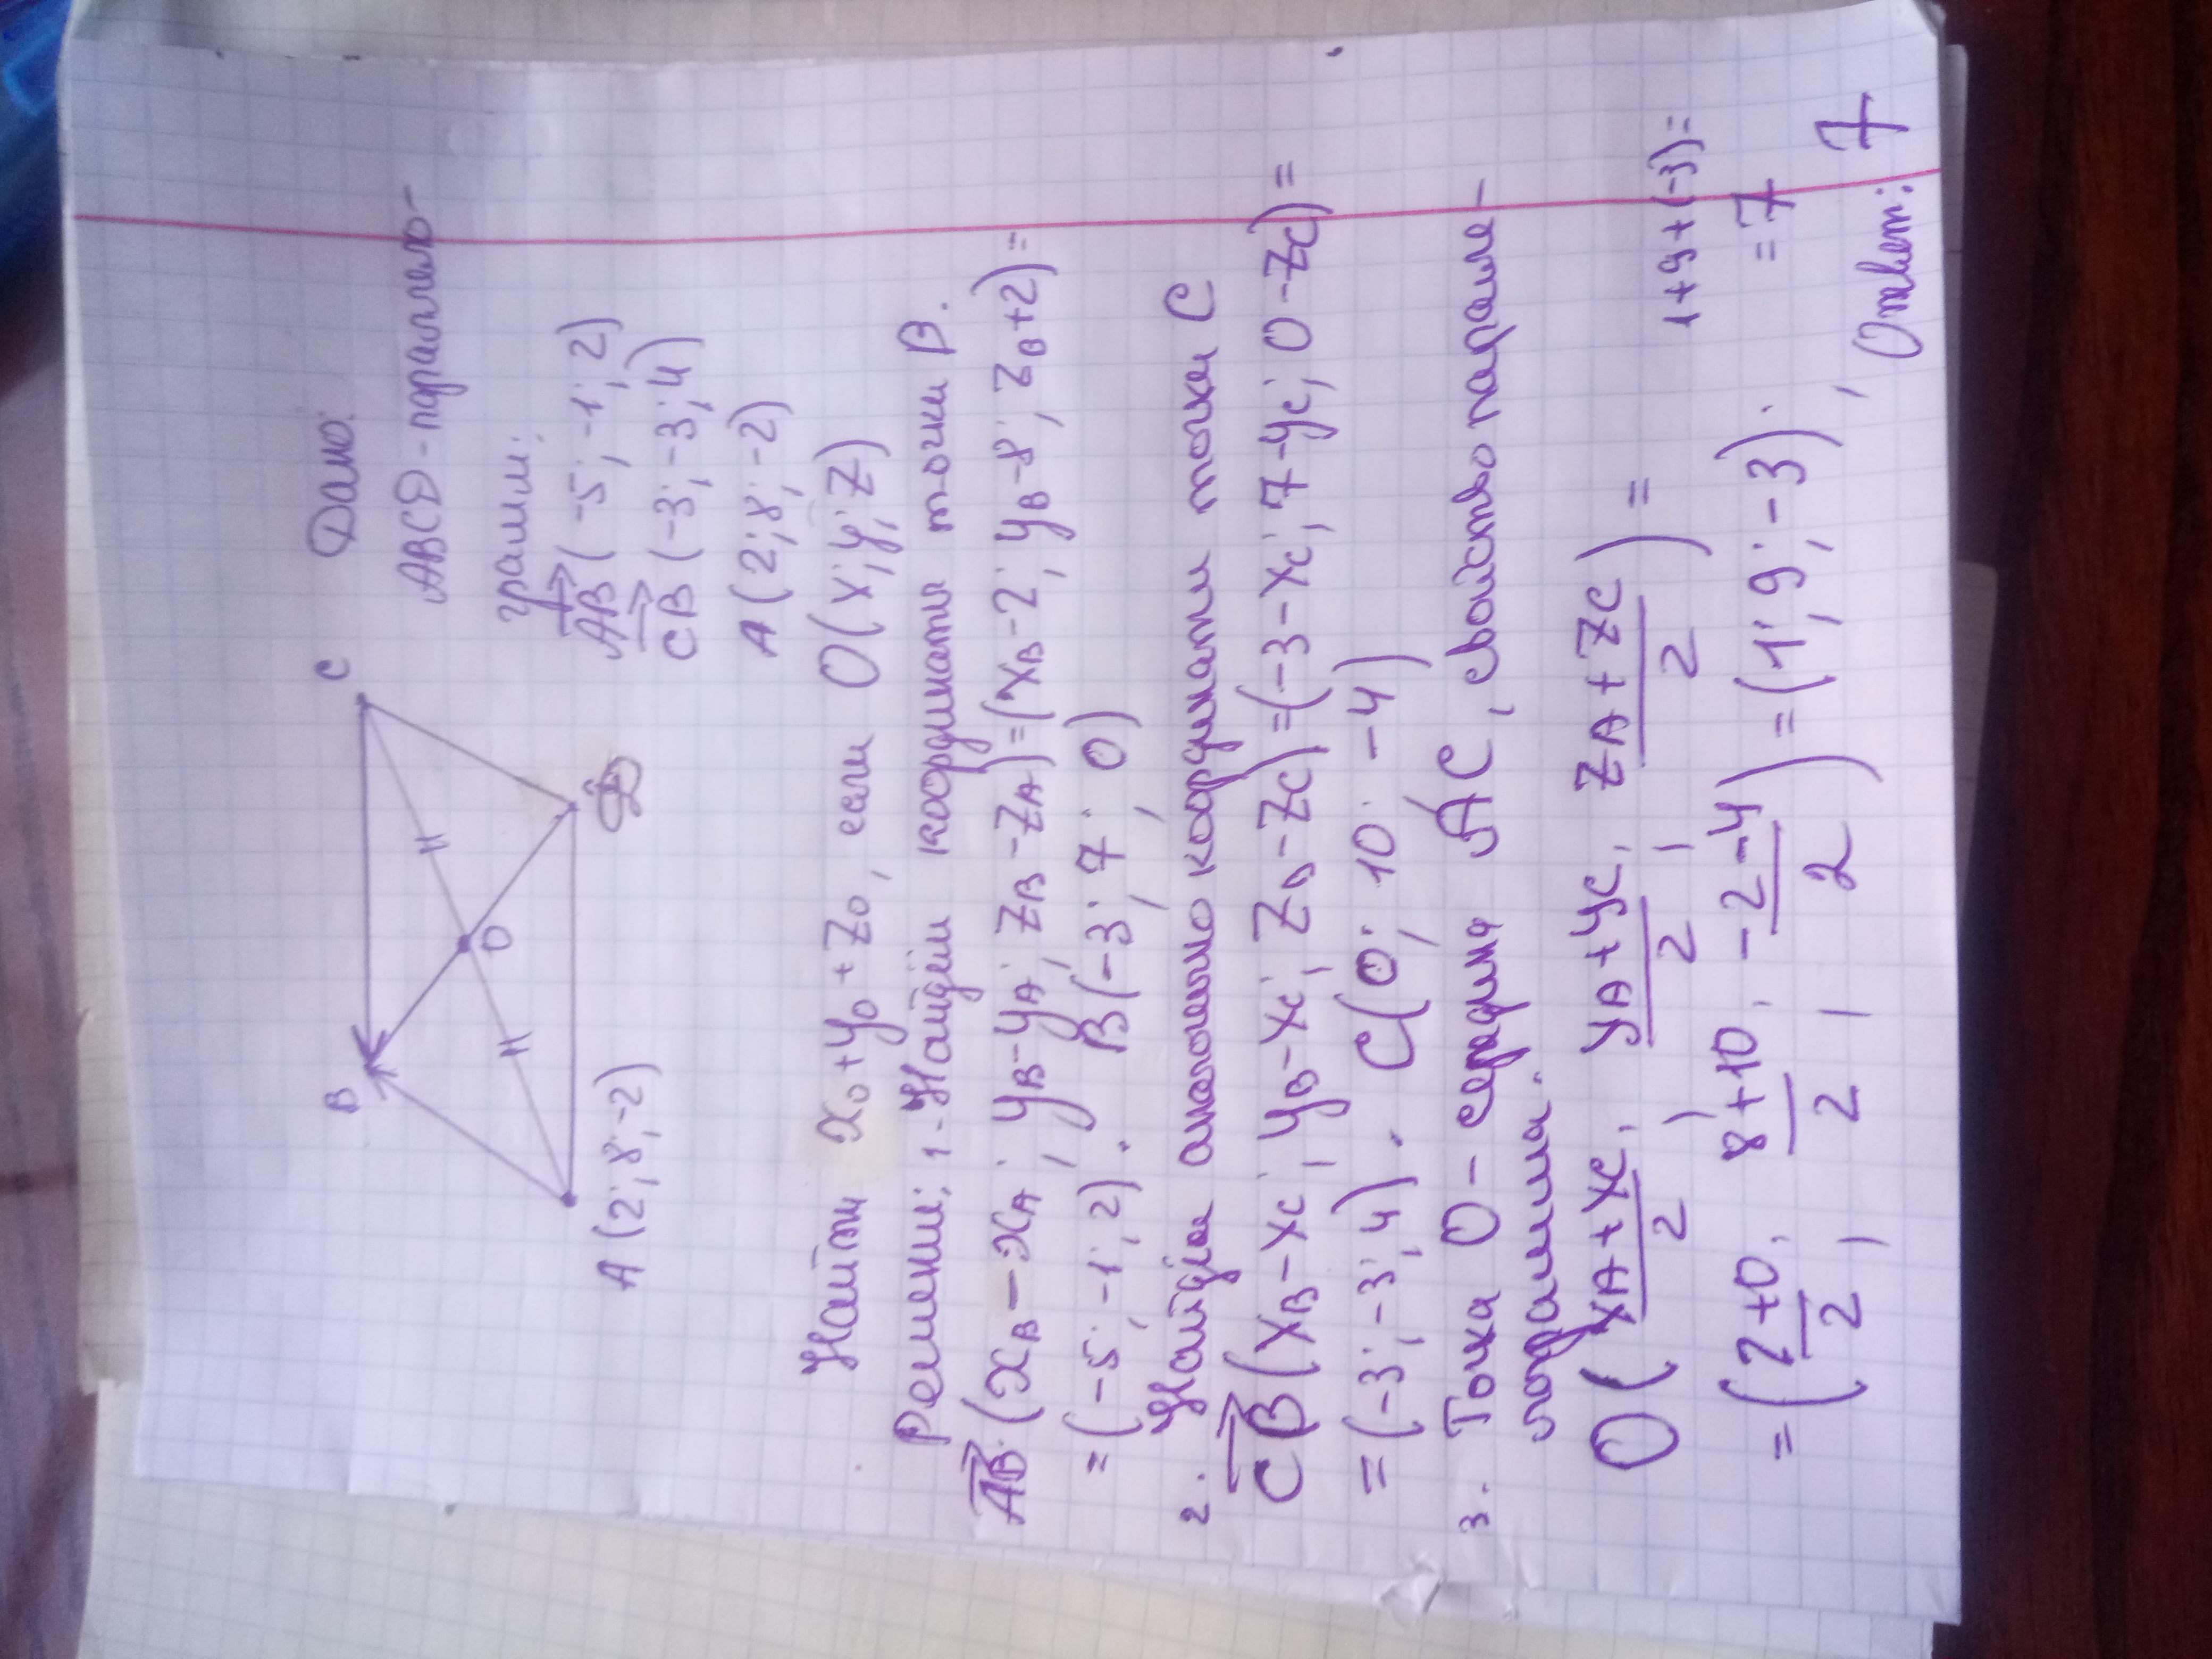 Дано:
B
C
ABCD - параллело-
грамм:
O
AB (-5; -1; 2)
CB (-3; -3; 4)
A (2; 8; -2)
D
A (2; 8; -2)
Найти x₀ + y₀ + z₀, если O (x; y; z)
Решении; 1 - Найдём координаты точки B.
AB (xB - xA; yB - yA; zB - zA) = (xB - 2; yB - 8; zB + 2) =
= (-5; -1; 2). B (-3; 7; 0)
2. Найдём аналогично координаты точки C
CB (xB - xc; yB - xc; zB - zc) = (-3 - xc; 7 - yc; 0 - zc) =
= (-3; -3; 4). C (0; 10; -4)
3. Точка O - середина AC, свойство паралле-
лограмма.
O ( xA + xc / 2 ; yA + yc / 2 ; zA + zc / 2 ) =
1 + 9 + (-3) =
= ( 2 + 0 / 2 ; 8 + 10 / 2 ; -2 - 4 / 2 ) = (1; 9; -3).
= 7
, Ответ: 7